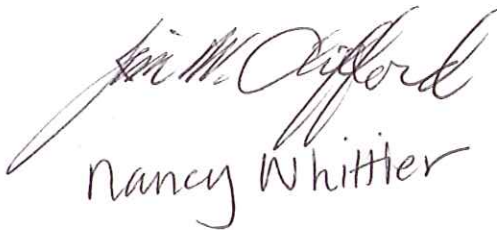 Jim M. Clifford
Nancy Whittier